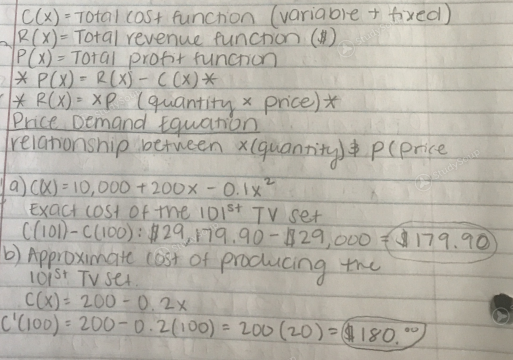 C(x) = Total cost function (variable + fixed)
R(x) = Total revenue function ($)
P(x) = Total profit function
* P(x) = R(x) - C(x) *
* R(x) = xp (quantity x price) *
Price Demand Equation
relationship between x(quantity) & P(price
a) C(x) = 10,000 + 200x - 0.1x²
Exact cost of the 101st TV set
C(101) - C(100) : $29,179.90 - $29,000 = $179.90
b) Approximate cost of producing the
101st TV set.
C(x) = 200 - 0.2x
C'(100) = 200 - 0.2(100) = 200 (20) = $180.00